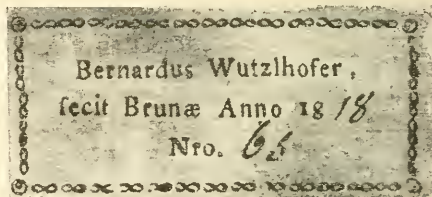 Bernardus Wutzlhofer,
fecit Brunæ Anno 1818
Nro. 65